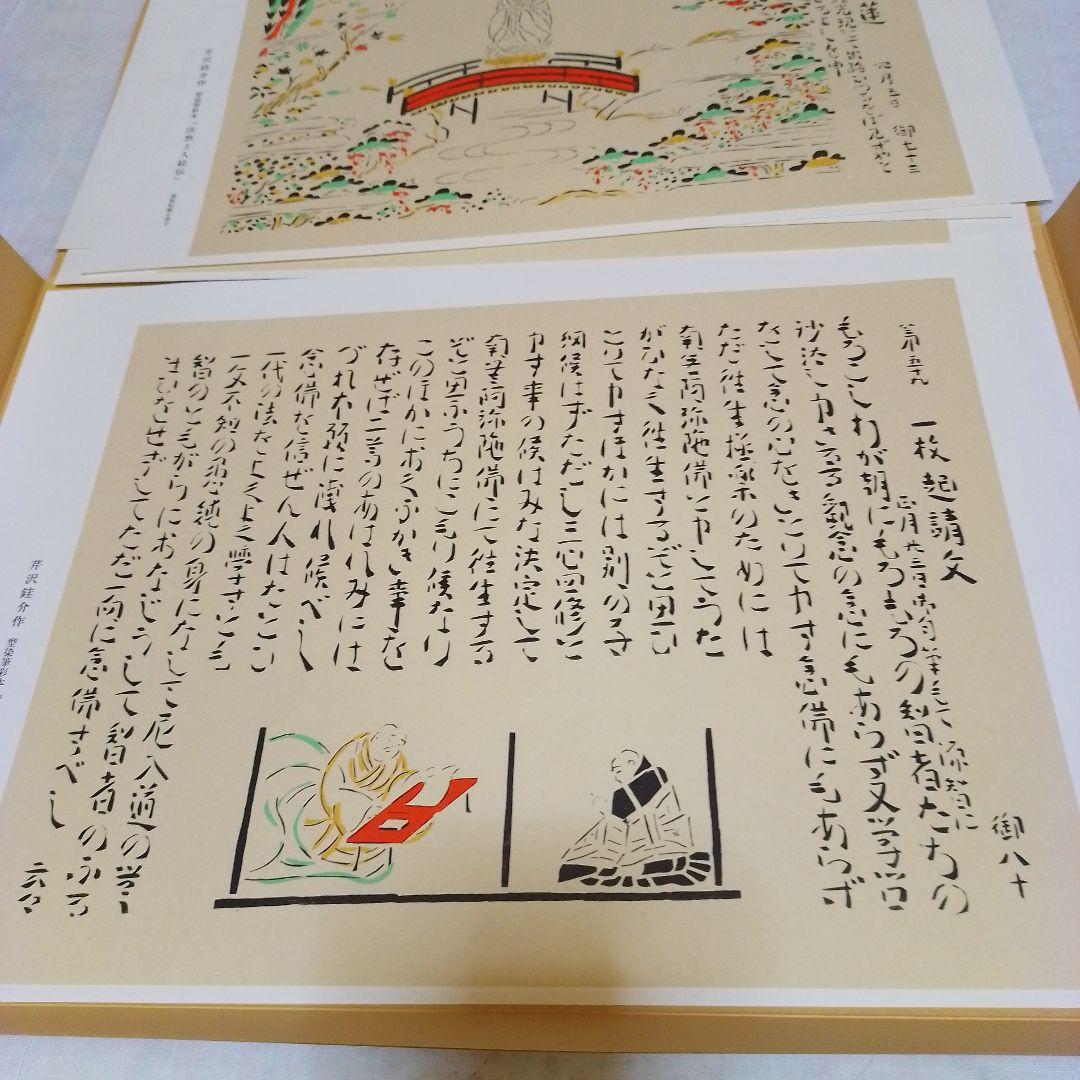 蓮
四月五日 御七十三
芹沢銈介作 型染筆彩本「法然上人絵伝」
一枚起請文
正月廿三日 源智に
御八十
もろこしわが朝にもろもろの智者たちの
沙汰し申さるる観念の念にもあらず又学問
をして念の心をさとりて申す念佛にもあらず
ただ往生極楽のためには
南無阿弥陀佛と申してうた
がひなく往生するぞと思ひ
とりて申すほかには別の子さ
細候はずただし三心四修と
申す事の候はみな決定して
南無阿弥陀佛にて往生する
ぞと思ふうちにこもり候なり
このほかにおくふかき事を
存ぜば二尊のあはれみには
づれ本願に漏れ候べし
念佛を信ぜん人はたとひ
一代の法をよくよく學すとも
一文不知の愚鈍の身になして尼入道の無
智のともがらにおなじうして智者のふる
まひをせずしてただ一向に念佛すべし
云々
芹沢銈介作 型染筆彩本